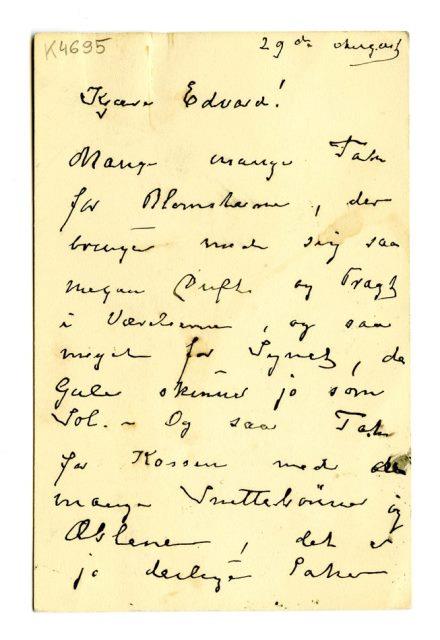 K4695
29de August
Kjære Edvard!
Mange mange Tak
for Blomsterne, der
bringer med sig saa
megen Duft og Pragt
i Værelserne, og saa
meget for Synet, de
Gule skinner jo som
Sol. ~ Og saa Tak
for Kassen med de
mange Snittebönner og
Æblerne, det er
jo deilige Saker